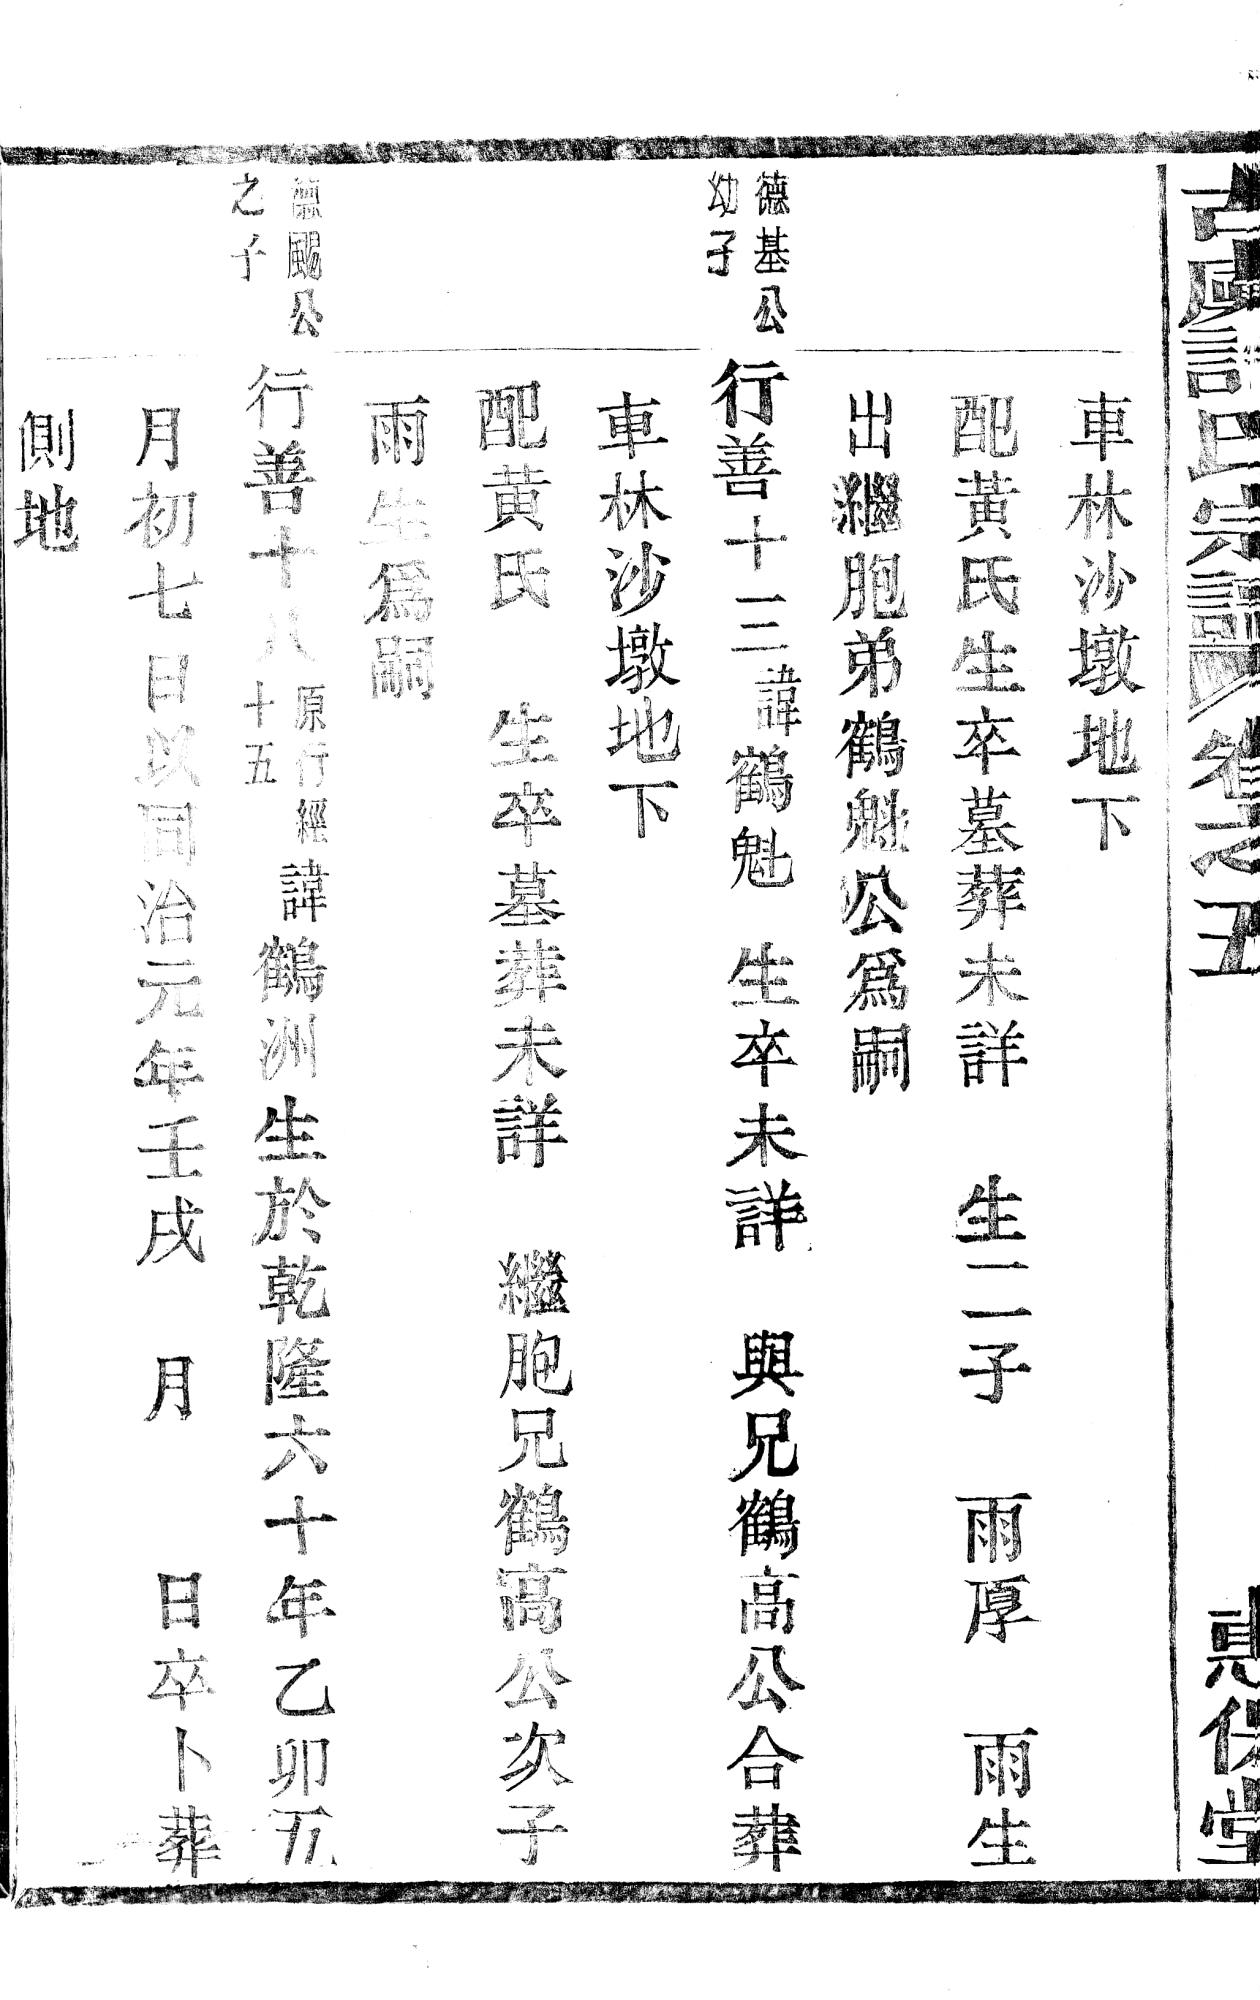 古虞氏宗譜 卷之五 堂
車林沙墩地下
配黃氏生卒墓葬未詳 生二子 雨厚 雨生
出繼胞弟鶴魁公爲嗣
德基公
幼子
行善十三諱鶴魁 生卒未詳 與兄鶴高公合葬
車林沙墩地下
配黃氏 生卒墓葬未詳 繼胞兄鶴高公次子
雨生爲嗣
德颺公
之子
行善十八原行經十五諱鶴洲生於乾隆六十年乙卯五
月初七日以同治元年壬戌 月 日卒卜葬
側地